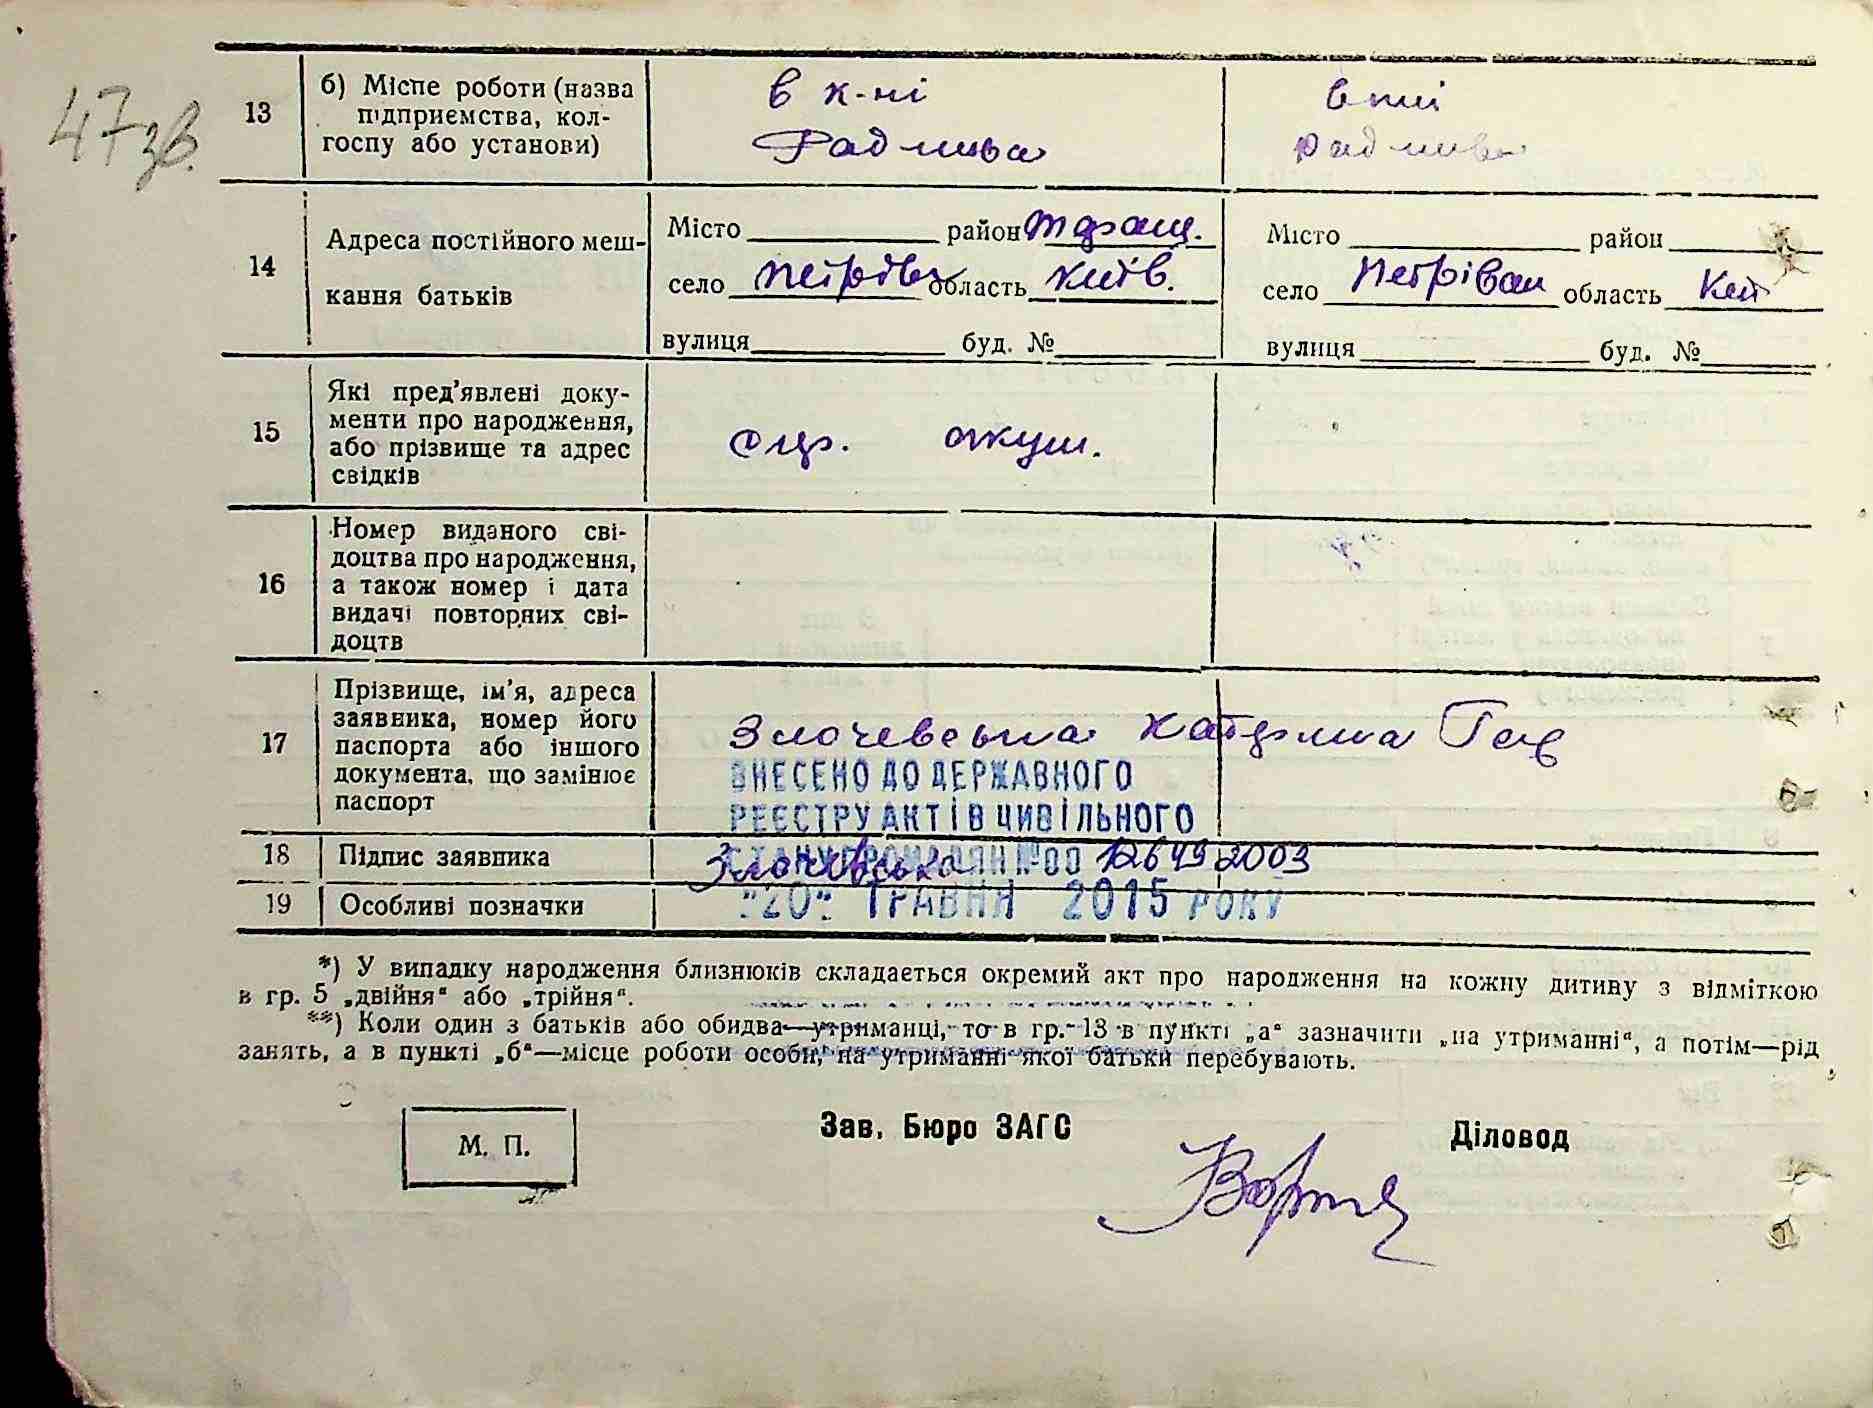 47зв.
13
б) Місце роботи (назва підприємства, колгоспу або установи)
в к-ні
Радлива
в тіі
14
Адреса постійного меш-
кання батьків
Місто район Таращ.
село Петрівк область Київ.
вулиця буд. №
Місто район
село Петрівки область Киї
вулиця буд. №
15
Які пред'явлені доку-
менти про народження,
або прізвище та адрес
свідків
акуш.
16
Номер виданого сві-
доцтва про народження,
а також номер і дата
видачі повторних сві-
доцтв
17
Прізвище, ім'я, адреса
заявника, номер його
паспорта або іншого
документа, що замінює
паспорт
Злочевська Катерина
ВНЕСЕНО ДО ДЕРЖАВНОГО
РЕЄСТРУ АКТІВ ЦИВІЛЬНОГО
18
Підпис заявника
СТАНУ ГРОМАДЯН №00 126492003
Злочевська
19
Особливі позначки
"20" ТРАВНЯ 2015 РОКУ
*) У випадку народження близнюків складається окремий акт про народження на кожну дитину з відміткою
в гр. 5 „двійня“ або „трійня“.
**) Коли один з батьків або обидва—утриманці, то в гр. 13 в пункті „а“ зазначити „на утриманні“, а потім—рід
занять, а в пункті „б“—місце роботи особи, на утриманні якої батьки перебувають.
М. П.
Зав. Бюро ЗАГС
Діловод